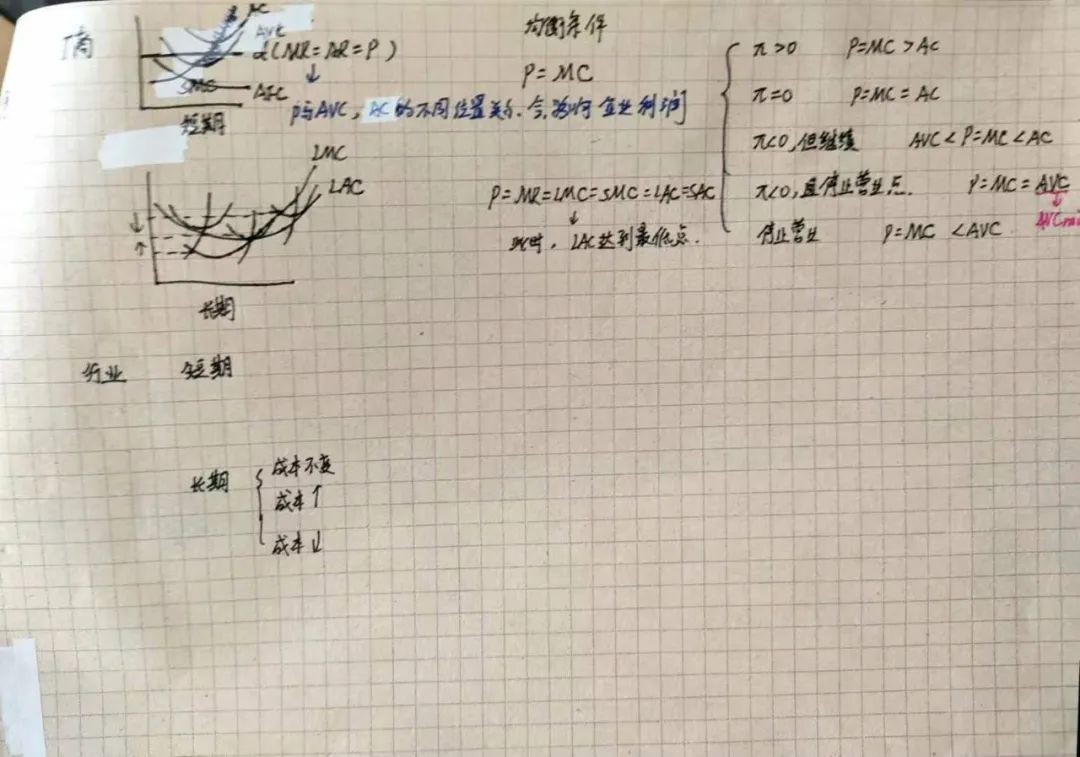 厂商
AC
AVC
d(MR=AR=P)
SMC
AFC
短期
P与AVC,AC的不同位置关系.会影响企业利润
均衡条件
P=MC
π>0 P=MC>AC
π=0 P=MC=AC
π<0,但继续 AVC<P=MC<AC
π<0,且停止营业点. P=MC=AVC
停止营业 P=MC <AVC
LMC
LAC
长期
P=MR=LMC=SMC=LAC=SAC
此时, LAC达到最低点.
行业 短期
长期
成本不变
成本↑
成本↓